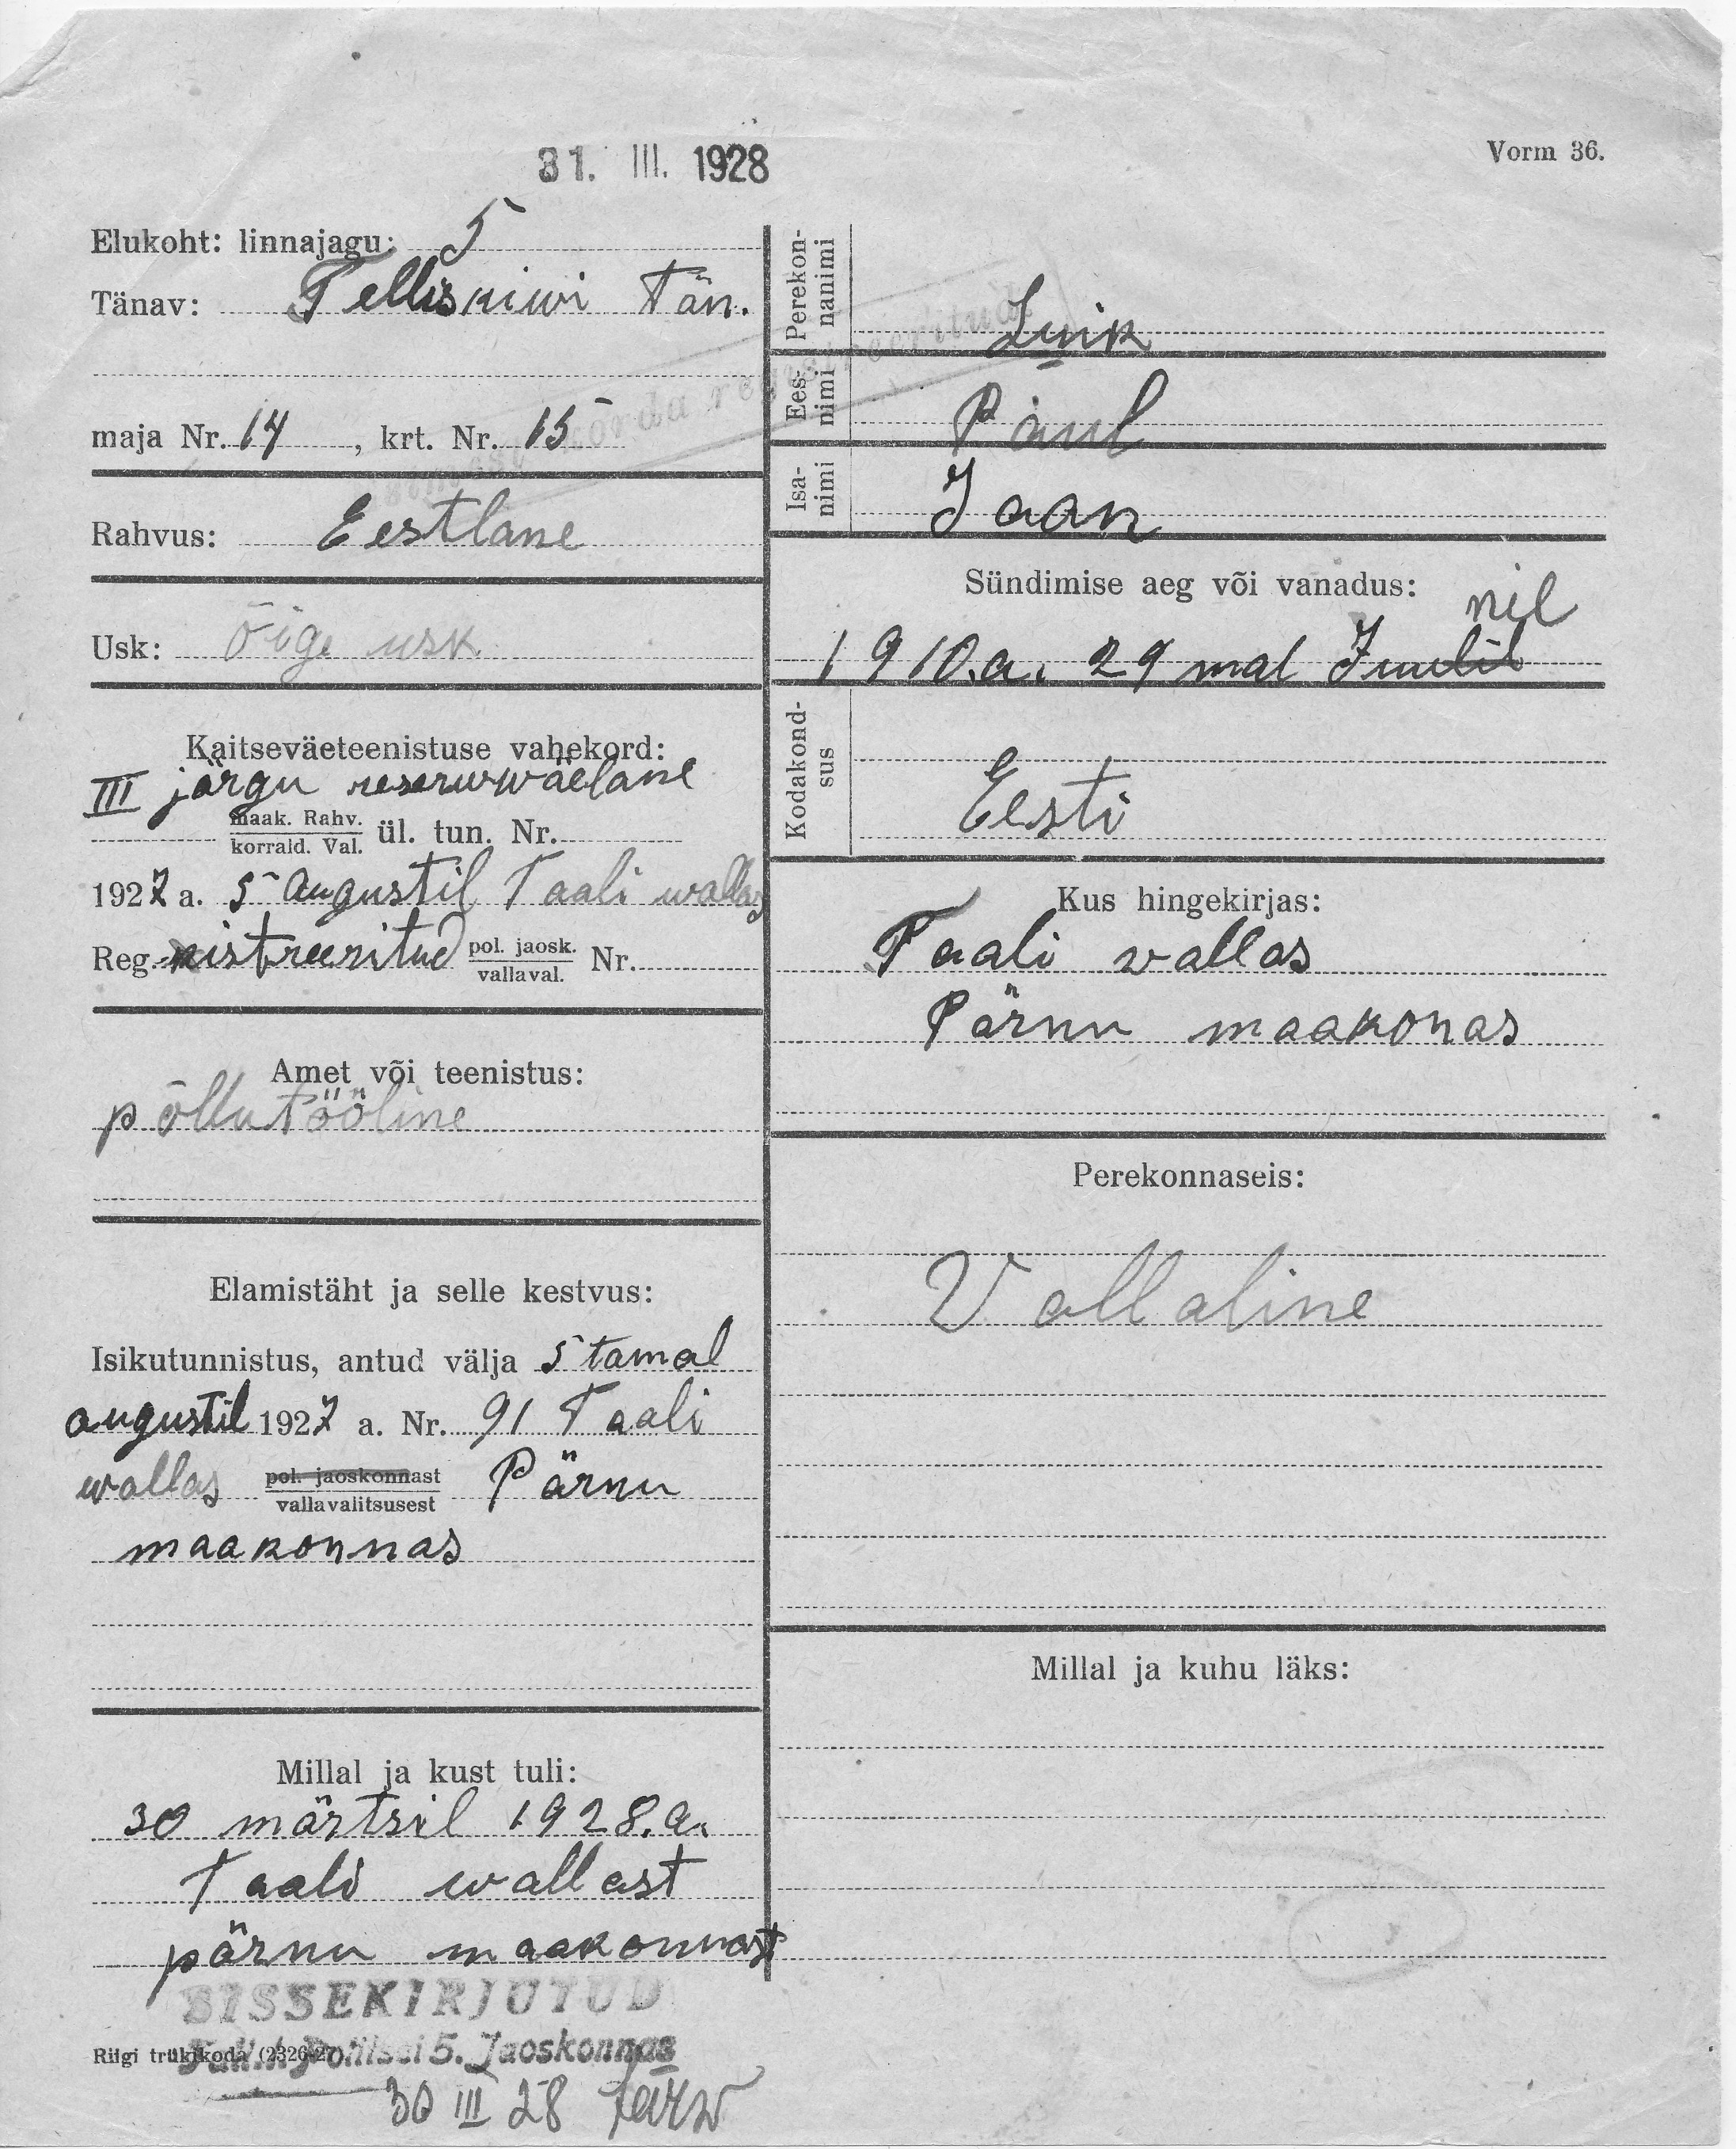 31. III. 1928
Vorm 36.
Elukoht: linnajagu: 5
Tänav: Telliskiwi tän.
maja Nr. 14, krt. Nr. 15
Rahvus: Eestlane
Usk: õige usk
Kaitseväeteenistuse vahekord:
III järgu reserwwäelane
maak. Rahv.
korrald. Val. ül. tun. Nr.
1927 a. 5 augustil Taali wallas
Reg. istreeritud pol. jaosk.
vallaval. Nr.
Amet või teenistus:
põllutööline
Elamistäht ja selle kestvus:
Isikutunnistus, antud välja 5 tamal
augustil 1927 a. Nr. 91 Taali
wallas pol. jaoskonnast
vallavalitsusest Pärnu
maakonnas
Millal ja kust tuli:
30 märtsil 1928.a.
Taali wallast
pärnu maakonnast
SISSEKIRJUTUD
Tall. Politsei 5. Jaoskonnas
Riigi trükikoda (2326-27)
30 III 28
Perekonnanimi
Luik
Eesnimi
Paul
Isanimi
Jaan
Sündimise aeg või vanadus:
nil
1910.a. 29 mal Juulil
Kodakondsus
Eesti
Kus hingekirjas:
Taali wallas
Pärnu maakonas
Perekonnaseis:
Vallaline
Millal ja kuhu läks: